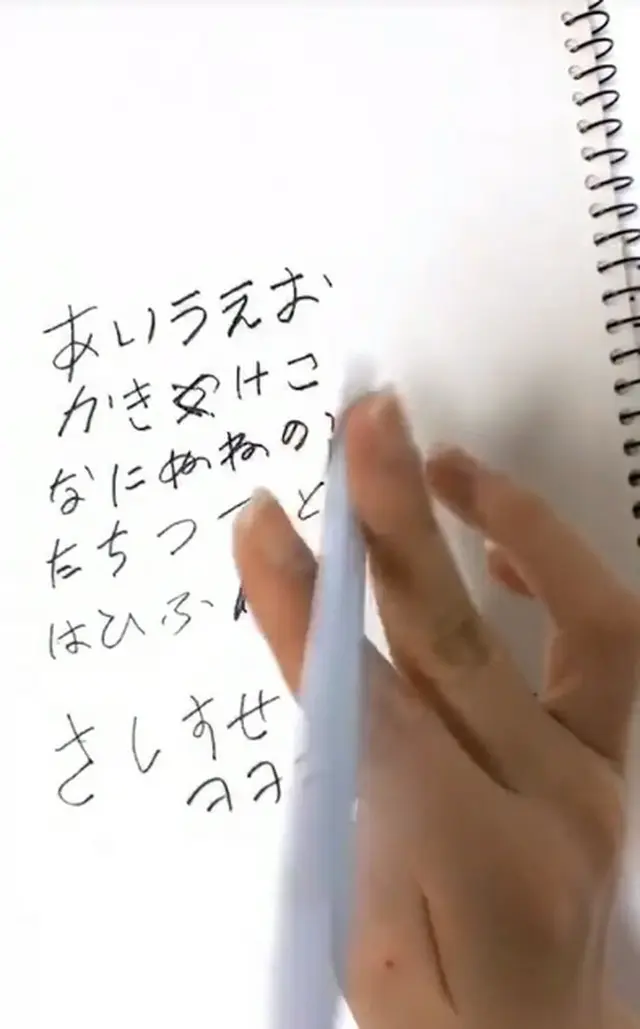 あいうえお
かき けこ
なに ねの
たちつ と
はひふ
さしすせ